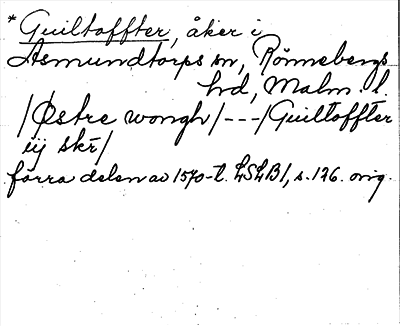 * Guiltoffter, åker i
Asmundtorps sn, Rönnebergs
hd, Malm. l.
/Østre wongh/---/Guiltoffter
iij skr/
förra delen av 1570-t. LSLB1, s. 126. orig.